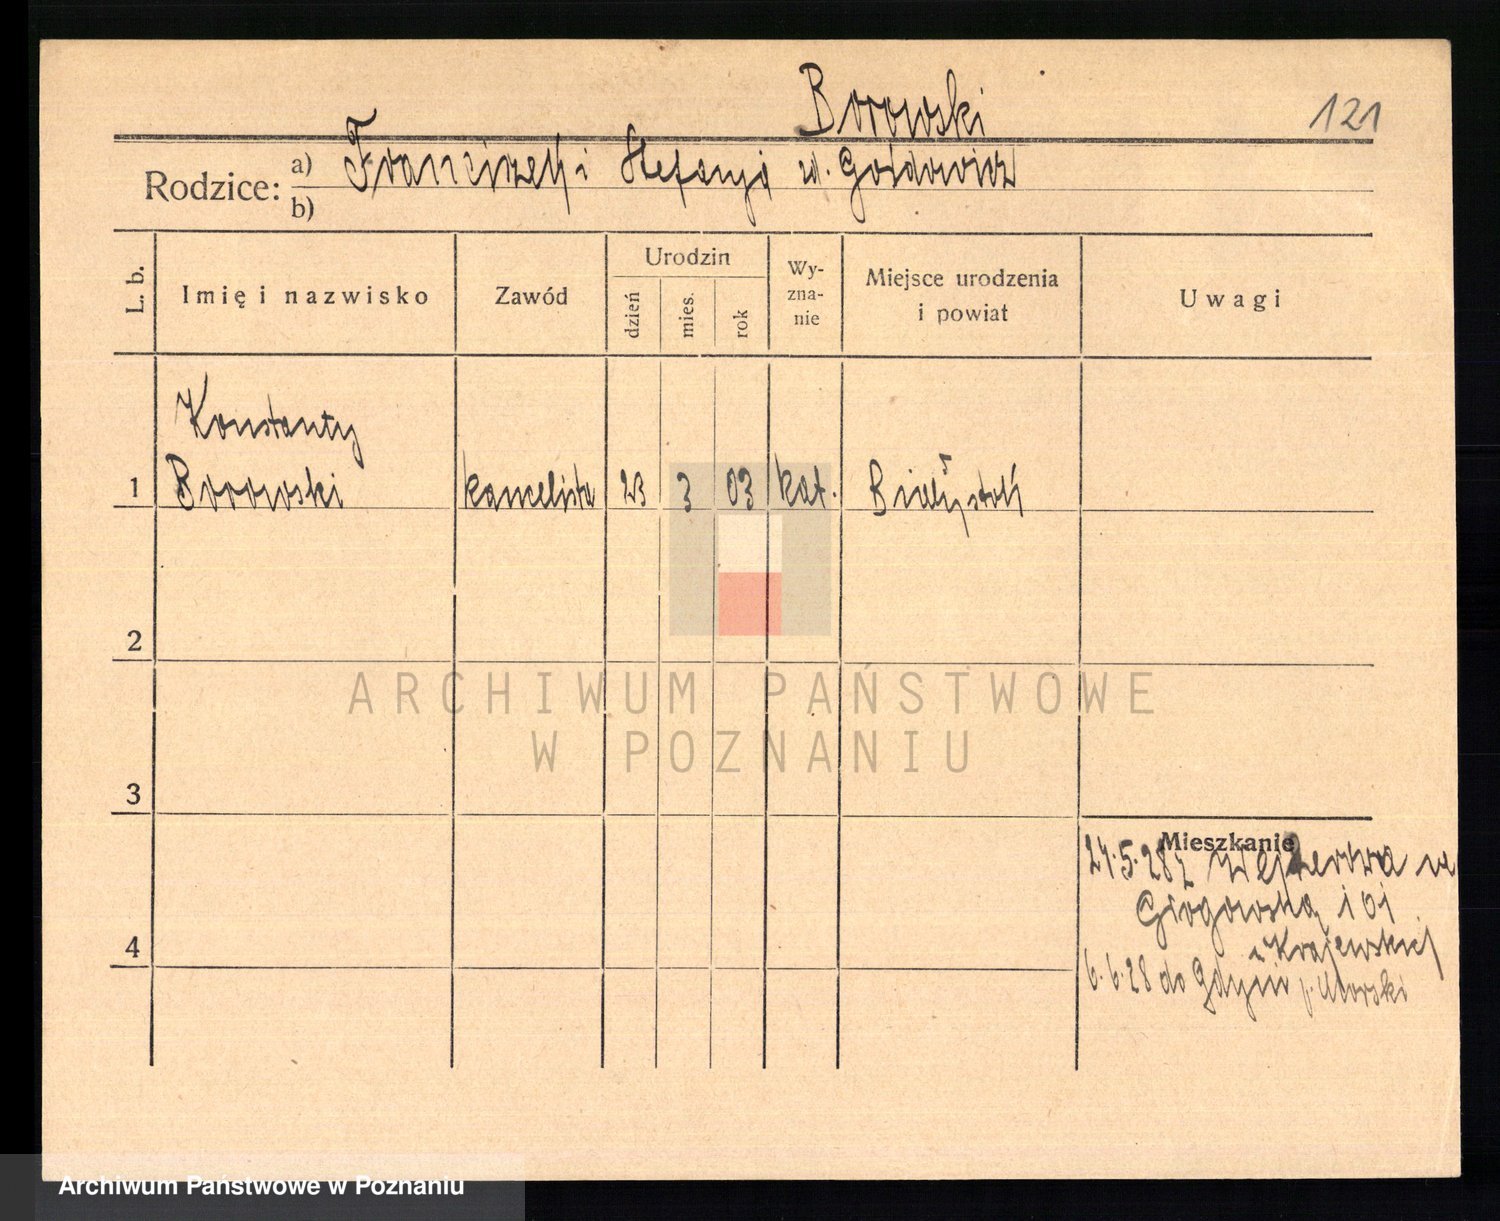 Borowski
121
Rodzice: a) Franciszek i Stefanja zd. Gozdowicz
b)
L. b.
Imię i nazwisko
Zawód
Urodzin
dzień
mies.
rok
Wy-
zna-
nie
Miejsce urodzenia
i powiat
Uwagi
Konstanty
1 Borowski kancelista 23 3 03 kat. Białystok
2
ARCHIWUM PAŃSTWOWE
W POZNANIU
3
Mieszkanie
5.28 z Wejherowa
Głogowska 101
4
u Krajewskiej
6.6.28 do Gdyni p. Morski
Archiwum Państwowe w Poznaniu